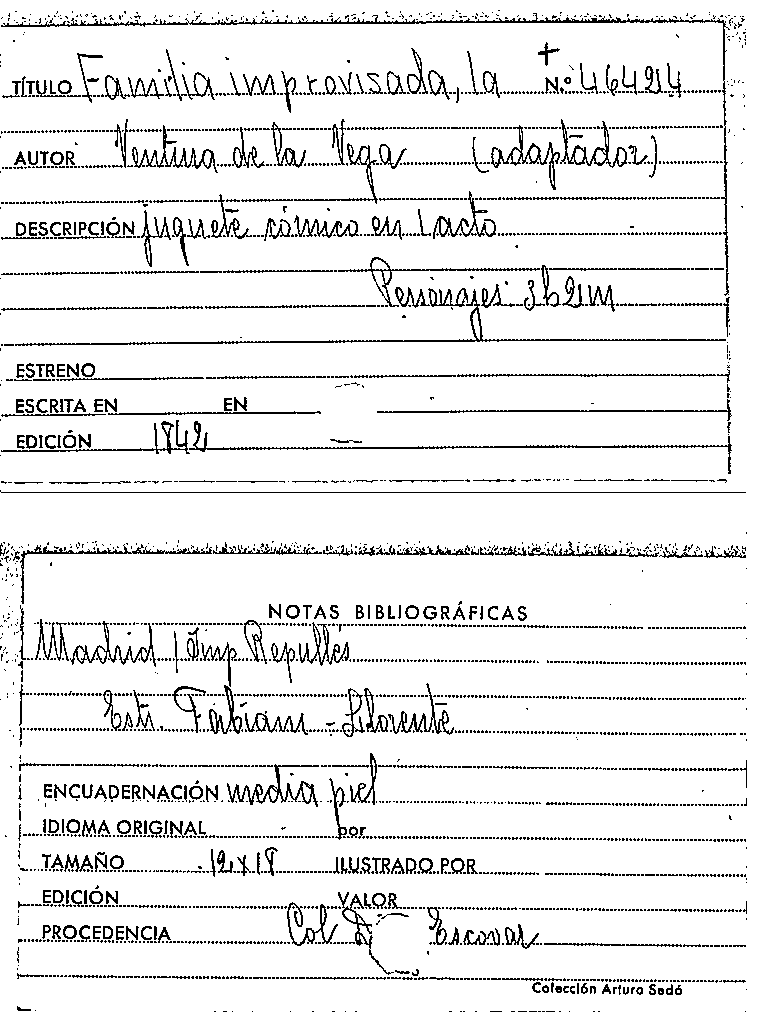 TÍTULO Familia improvisada, la N.º 46424
AUTOR Ventura de la Vega (adaptador)
DESCRIPCIÓN juguete cómico en 1 acto
Personajes 3h 2m
ESTRENO
ESCRITA EN EN
EDICIÓN 1842
NOTAS BIBLIOGRÁFICAS
Madrid / Imp Repullés
Estr. Fabiani - Llorente
ENCUADERNACIÓN media piel
IDIOMA ORIGINAL por
TAMAÑO 12 x 18 ILUSTRADO POR
EDICIÓN VALOR
PROCEDENCIA Col Escovar
Colección Arturo Sedó